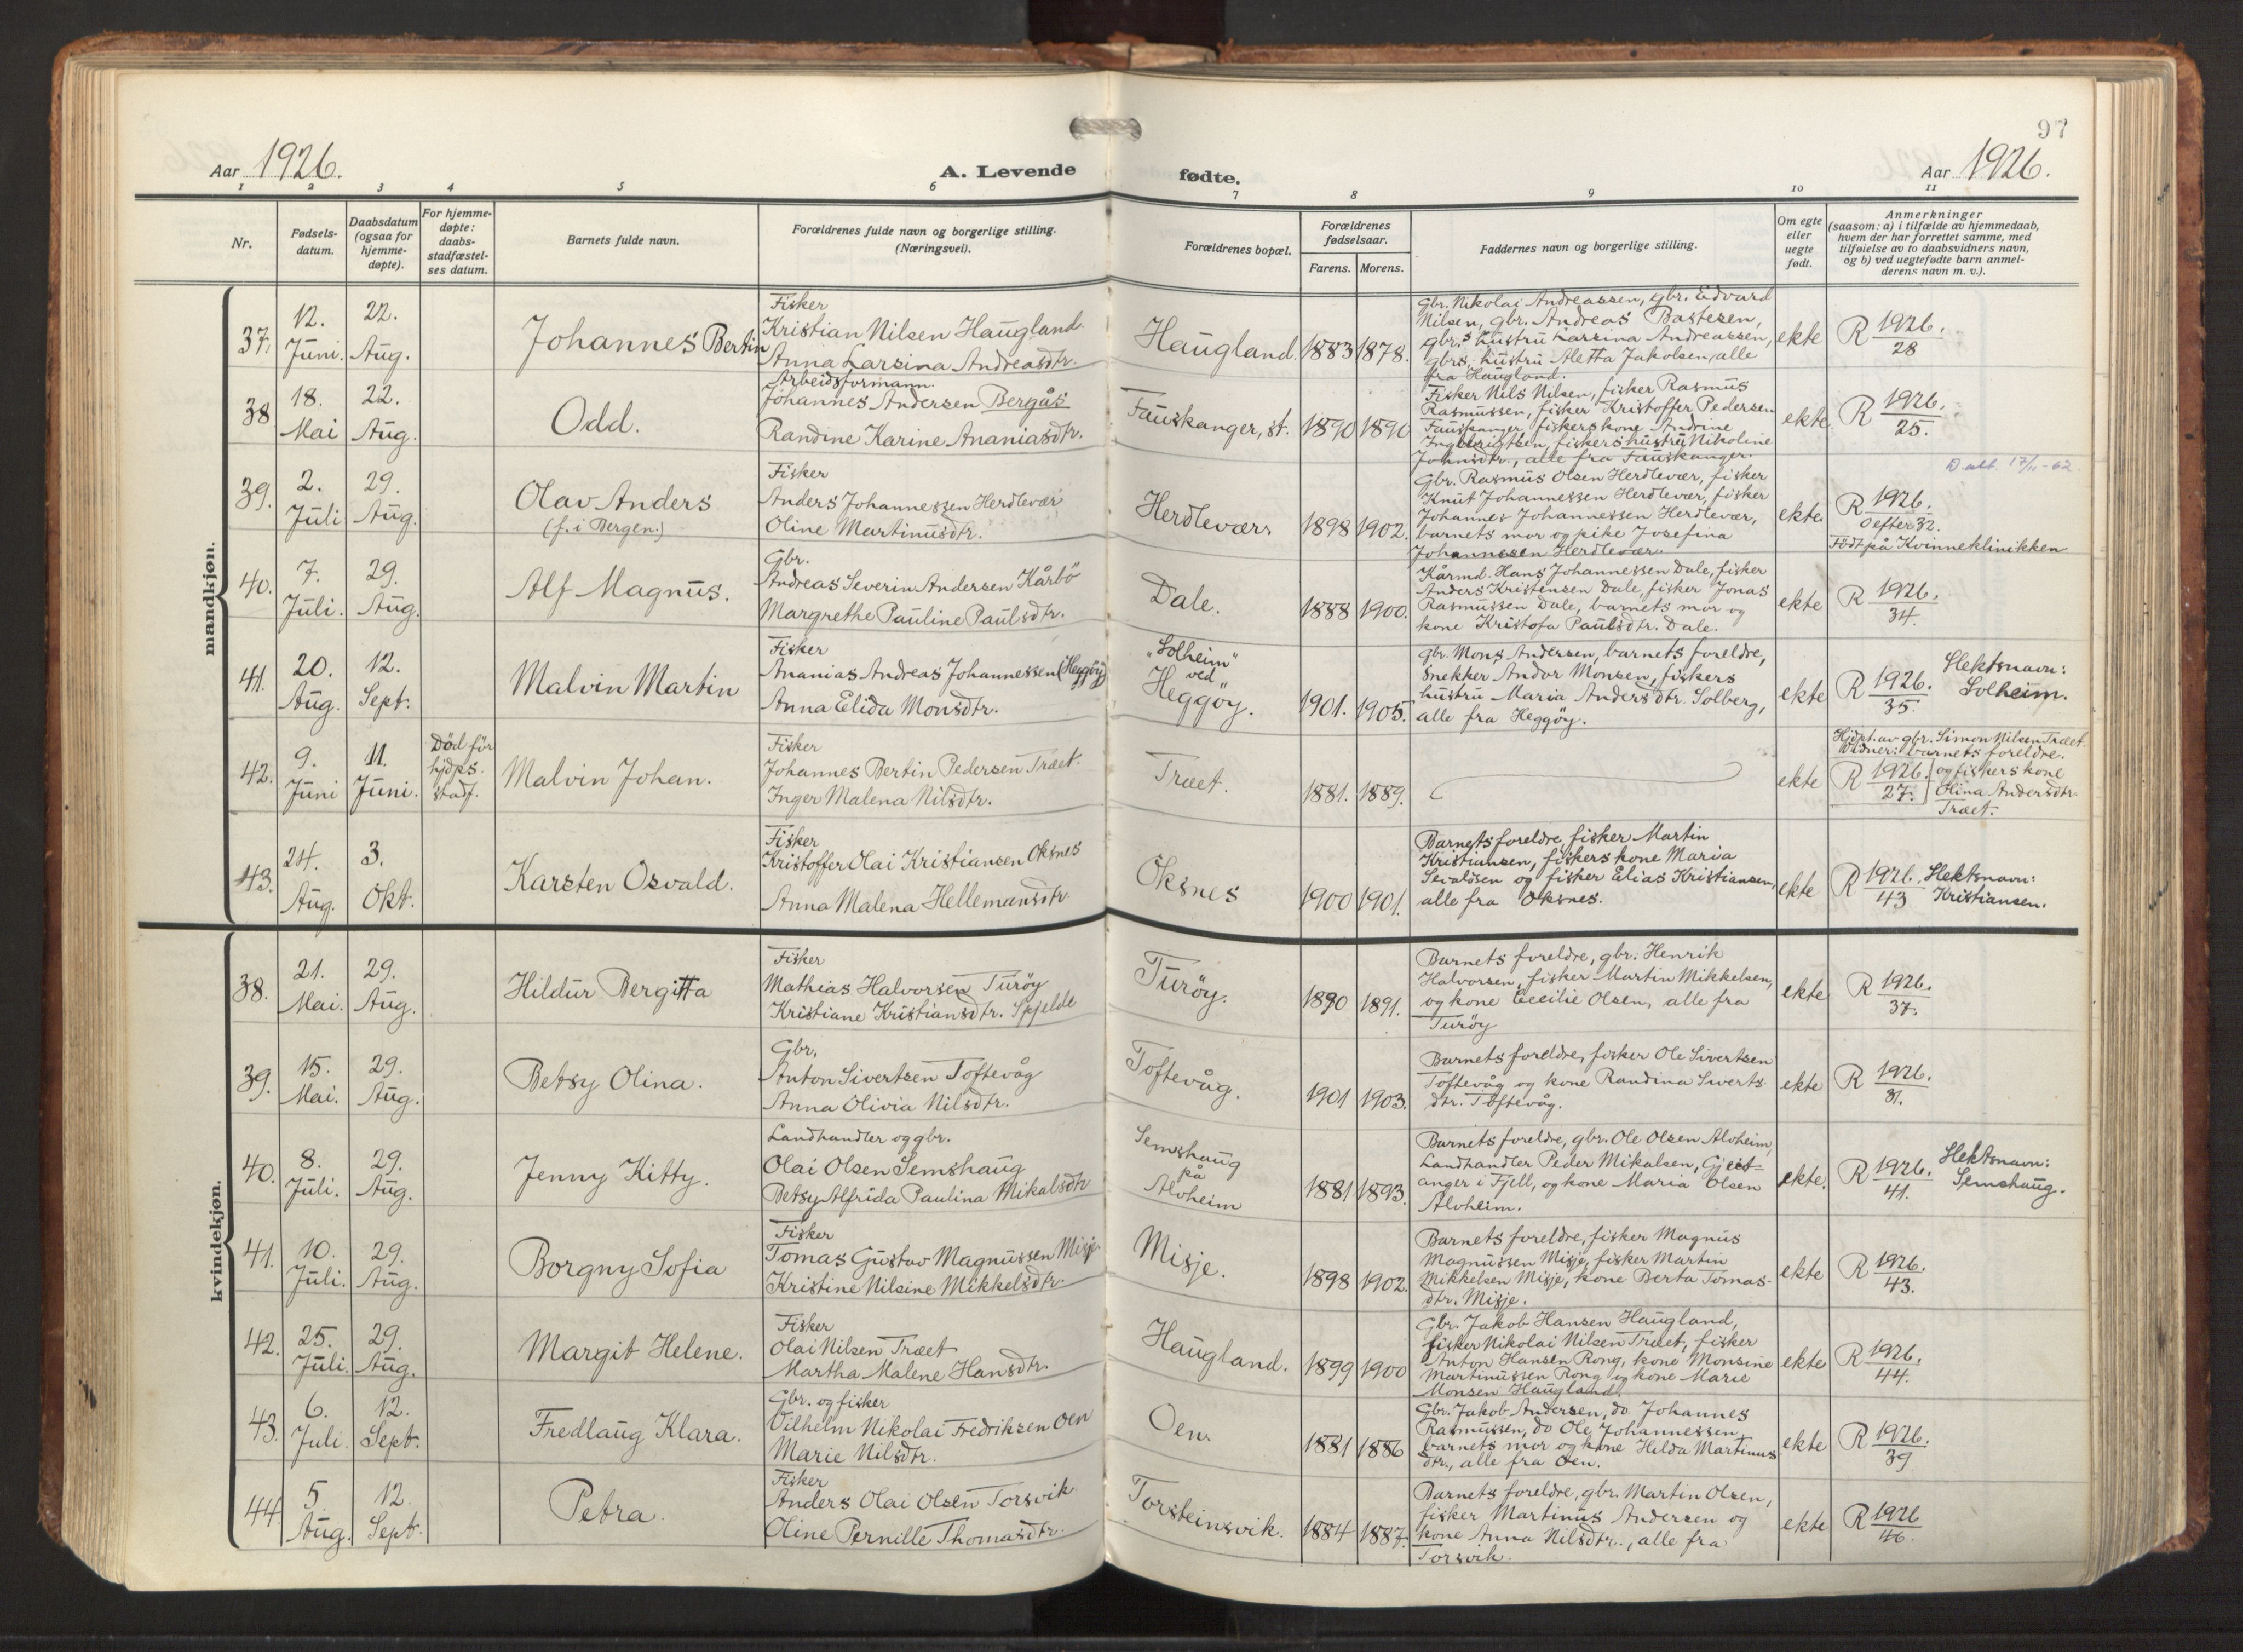 97
Aar 1926.
A. Levende fødte.
Aar 1926.
1 2 3 4 5 6 7 8 9 10 11
Nr.
Fødsels-
datum.
Daabsdatum
(ogsaa for
hjemme-
døpte).
For hjemme-
døpte:
daabs-
stadfæstel-
ses datum.
Barnets fulde navn.
Forældrenes fulde navn og borgerlige stilling.
(Næringsvei).
Forældrenes bopæl.
Forældrenes
fødselsaar.
Farens. Morens.
Faddernes navn og borgerlige stilling.
Om egte
eller
uegte
født.
Anmerkninger
(saasom: a) i tilfælde av hjemmedaab,
hvem der har forrettet samme, med
tilføielse av to daabsvidners navn,
og b) ved uegtefødte barn anmel-
derens navn m. v.).
mandkjøn.
37.
12.
Juni.
22.
Aug.
Johannes Bertin
Fisker
Kristian Nilsen Haugland
Anna Larsina Andreasdtr.
Haugland.
1883
1878.
Gbr. Nikolai Andreassen, gbr. Edvard
Nilsen, gbr. Andreas Bastesen,
gbr.s hustru Larsina Andreassen,
gbrs. hustru Aletta Jakobsen, alle
fra Haugland.
ekte
R 1926.
28
38
18.
Mai
22.
Aug.
Odd.
Arbeidsformann.
Johannes Andersen Bergås
Randine Karine Ananiasdtr.
Fauskanger, st.
1890
1890
Fisker Nils Nilsen, fisker Rasmus
Rasmussen, fisker Kristoffer Pedersen
Fauskanger, fiskerskone Andrine
Ingbrigtsen, fiskers hustru Nikoline
Johnsdtr., alle fra Fauskanger.
ekte.
R 1926.
25.
39.
2.
Juli
29.
Aug.
Olav Anders
(f. i Bergen.)
Fisker
Anders Johannessen Herdlevær
Oline Martinusdtr.
Herdlevær.
1898
1902.
Gbr. Rasmus Olsen Herdlevær, fisker
Knut Johannessen Herdlevær, fisker
Johannes Johannessen Herdlevær,
barnets mor og pike Josefina
Johannessen Herdlevær.
ekte.
D. att. 17/11-62
R 1926.
0 efter 32.
Født på Kvinneklinikken
40.
7.
Juli.
29.
Aug.
Alf Magnus.
Gbr.
Andreas Severin Andersen Kårbö
Margrethe Pauline Paulsdtr.
Dale.
1888
1900.
Kårmd. Hans Johannessen Dale, fisker
Anders Kristensen Dale, fisker Jonas
Rasmussen Dale, barnets mor og
kone Kristofa Paulsdtr. Dale.
ekte
R 1926.
34.
41.
20.
Aug.
12.
Sept.
Malvin Martin
Fisker
Ananias Andreas Johannessen (Heggöy)
Anna Elida Monsdtr.
"Solheim"
ved
Heggöy.
1901.
1905.
Gbr. Mons Andersen, barnets foreldre,
Snekker Andor Monsen, fiskers
hustru Maria Andersdtr. Solberg,
alle fra Heggöy.
ekte
R 1926.
35.
Slektsnavn:
Solheim.
42.
9.
Juni
11.
Juni.
Död før
hjdps.
stadf.
Malvin Johan.
Fisker
Johannes Bertin Pedersen Træet.
Inger Malena Nilsdtr.
Træet.
1881.
1889.
ekte
Hjdpt. av gbr. Simon Nilsen Træet.
Vidner: barnets foreldre.
R 1926.
27.
og fiskerskone
Andersdtr.
Træet.
43.
24.
Aug.
3.
Okt.
Karsten Osvald.
Fisker
Kristoffer Olai Kristiansen Oksnes
Anna Malena Hellemansdtr.
Oksnes
1900
1901.
Barnets foreldre, fisker Martin
Kristiansen, fiskerskone Maria
Sevaldsen og fisker Elias Kristiansen,
alle fra Oksnes.
ekte
R 1926.
43
Slektsnavn:
Kristiansen.
kvindekjøn.
38.
21.
Mai.
29.
Aug.
Hildur Bergitta
Fisker
Mathias Halvorsen Turöy
Kristiane Kristiansdtr. Spjelde
Turöy.
1890
1891.
Barnets foreldre, gbr. Henrik
Halvorsen, fisker Martin Mikkelsen,
og kone Cecilie Olsen, alle fra
Turöy
ekte
R 1926.
37.
39.
15.
Mai.
29.
Aug.
Betsy Olina.
Gbr.
Anton Sivertsen Toftevåg
Anna Olivia Nilsdtr.
Toftevåg.
1901
1903.
Barnets foreldre, fisker Ole Sivertsen
Toftevåg og kone Randina Siverts-
dtr. Toftevåg.
ekte
R 1926.
31.
40.
8.
Juli.
29.
Aug.
Jenny Kitty.
Landhandler og gbr.
Olai Olsen Semshaug
Betsy Alfrida Paulina Mikalsdtr
Semshaug
på
Alvheim
1881
1893.
Barnets foreldre, gbr. Ole Olsen Alvheim,
Landhandler Peder Mikalsen, Gjeit-
anger i Fjell, og kone Maria Olsen
Alvheim.
ekte.
R 1926.
41.
Slektsnavn:
Semshaug.
41.
10.
Juli.
29.
Aug.
Borgny Sofia
Fisker
Tomas Gustav Magnussen Misje
Kristine Nilsine Mikkelsdtr.
Misje.
1898
1902.
Barnets foreldre, fisker Magnus
Magnussen Misje, fisker Martin
Mikkelsen Misje, kone Berta Tomas-
dtr. Misje.
ekte
R 1926.
43.
42.
25.
Juli.
29.
Aug.
Margit Helene.
Fisker
Olai Nilsen Træet
Martha Malene Hansdtr.
Haugland.
1899
1900
Gbr. Jakob Hansen Haugland,
fisker Nikolai Nilsen Træet, fisker
Anton Hansen Rong, kone Monsine
Martinussen Rong og kone Marie
Monsen Haugland.
ekte
R 1926.
44.
43.
6.
Juli.
12.
Sept.
Fredlaug Klara.
Gbr. og fisker
Vilhelm Nikolai Fredriksen Oen
Marie Nilsdtr.
Oen.
1881
1886
Gbr. Jakob Andersen, do. Johannes
Rasmussen, do Ole Johannessen,
barnets mor og kone Hilda Martinus-
dtr., alle fra Oen.
ekte
R 1926.
39
44.
5.
Aug.
12.
Sept.
Petra.
Fisker
Anders Olai Olsen Torsvik
Oline Pernille Thomasdtr.
Torsteinsvik.
1884
1887.
Barnets foreldre, gbr. Martin Olsen,
fisker Martinus Andersen og
kone Anna Nilsdtr., alle fra
Torsvik.
ekte
R 1926
46.